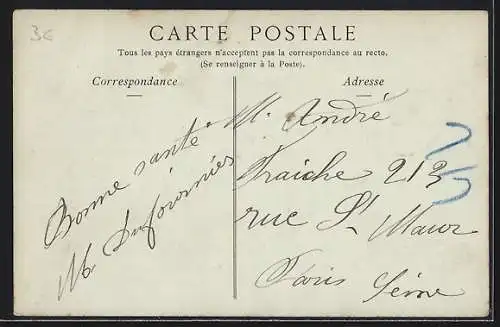 3€
CARTE POSTALE
Tous les pays étrangers n'acceptent pas la correspondance au recto.
(Se renseigner à la Poste).
Correspondance
Bonne santé
M Dufournier
Adresse
M. André
Fraiche 213
rue St Maur
Paris Seine